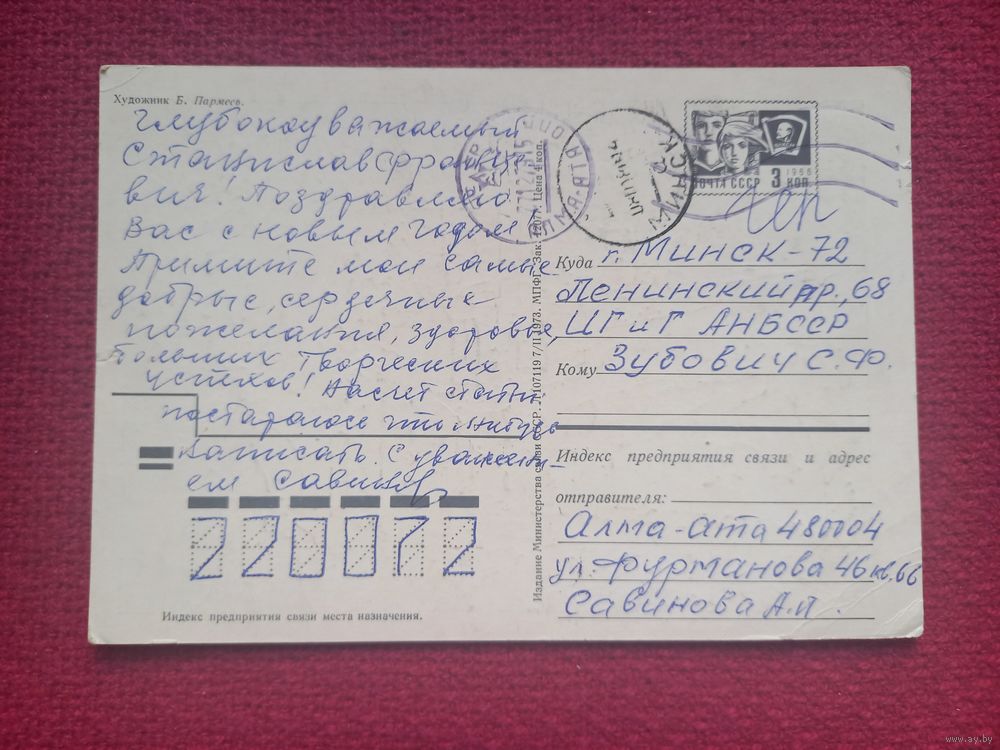 Художник Б. Пармеев.
Глубокоуважаемый
Станислав Франце
вич! Поздравляю
Вас с новым годом
Примите мои самые
добрые, сердечные
пожелания, здоровья,
больших творческих
успехов! Насчет статьи
постараюсь что-нибудь
написать. С уважени-
ем Савинов
Индекс предприятия связи места назначения.
Издание Министерства связи СССР. 107119 7/II 1973. МПФГ. Зак. 12077. Цена 4 коп.
АЛМА-АТА
МИНСК
ПОЧТА СССР 3 КОП.
1966
Куда г. Минск-72
Ленинский пр., 68
ЦГиГ АНБССР
Кому Зубович С.Ф.
Индекс предприятия связи и адрес
отправителя:
Алма-Ата 480004
ул. Фурманова 46 кв. 66
Савинова А.П.
220072
www.ay.by